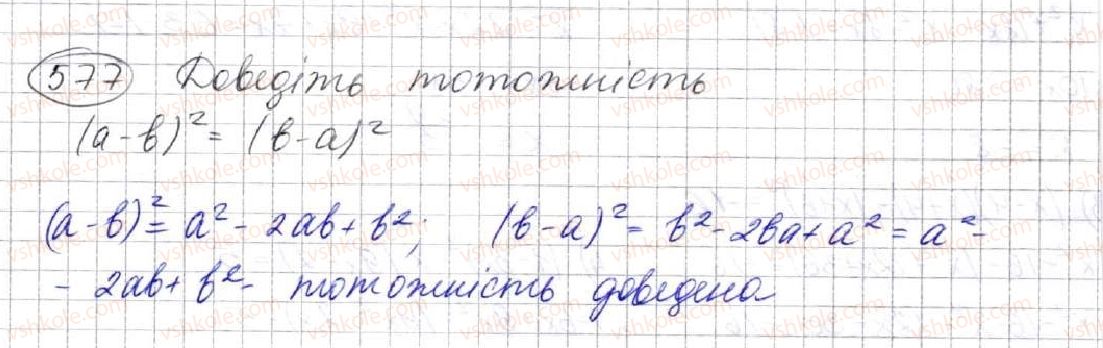 577 Доведіть тотожність
(a-b)² = (b-a)²
(a-b)² = a² - 2ab + b²; (b-a)² = b² - 2ba + a² = a² -
- 2ab + b² - тотожність доведена